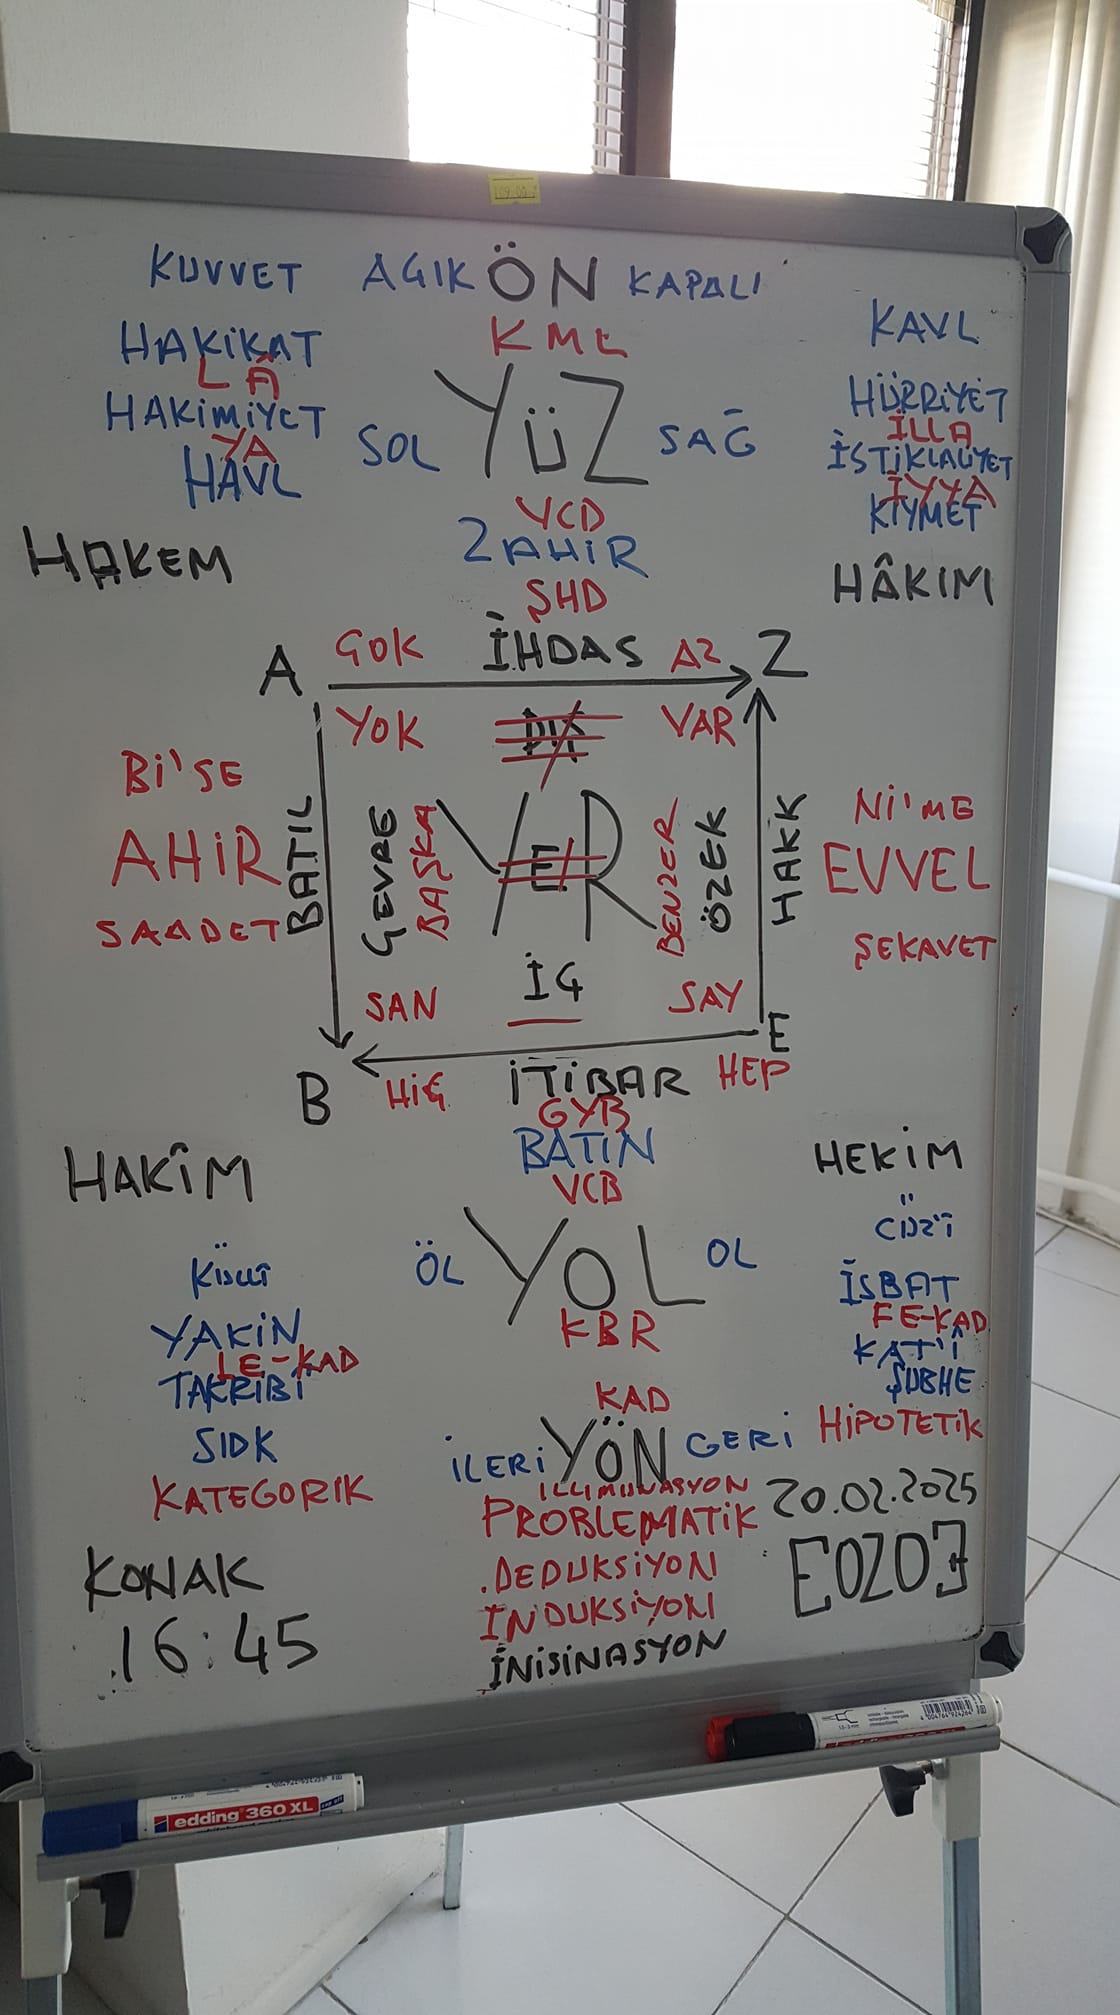 KUVVET AÇIK ÖN KAPALI
KML
KAVL
HAKİKAT
LÂ
HAKİMİYET
YA
HAVL
SOL YÜZ SAĞ
HÜRRİYET
İLLA
İSTİKLALİYET
İYYA
KIYMET
VCD
ZAHİR
ŞHD
HAKEM
HÂKIM
A ÇOK İHDAS AZ Z
YOK DIŞ VAR
Bİ'SE
AHİR
SAADET
BATIL
ÇEVRE
BAŞKA
YER
BENZER
ÖZEK
HAKK
Nİ'ME
EVVEL
ŞEKAVET
SAN İÇ SAY
B HİÇ İTİBAR HEP E
GYB
BATIN
VCB
HAKÎM
HEKİM
ÖL YOL OL
KBR
KÜLLÎ
YAKİN
LE-KAD
TAKRİBİ
SIDK
KATEGORIK
CÜZ'Î
İSBAT
FE-KAD
KAT'Î
ŞÜBHE
HİPOTETİK
KAD
İLERİ YÖN GERİ
İLLİMUNASYON
PROBLEMATİK
.DEDUKSİYON
İNDUKSİYON
İNİSİNASYON
20.02.2025
KONAK
16:45
edding 360 XL